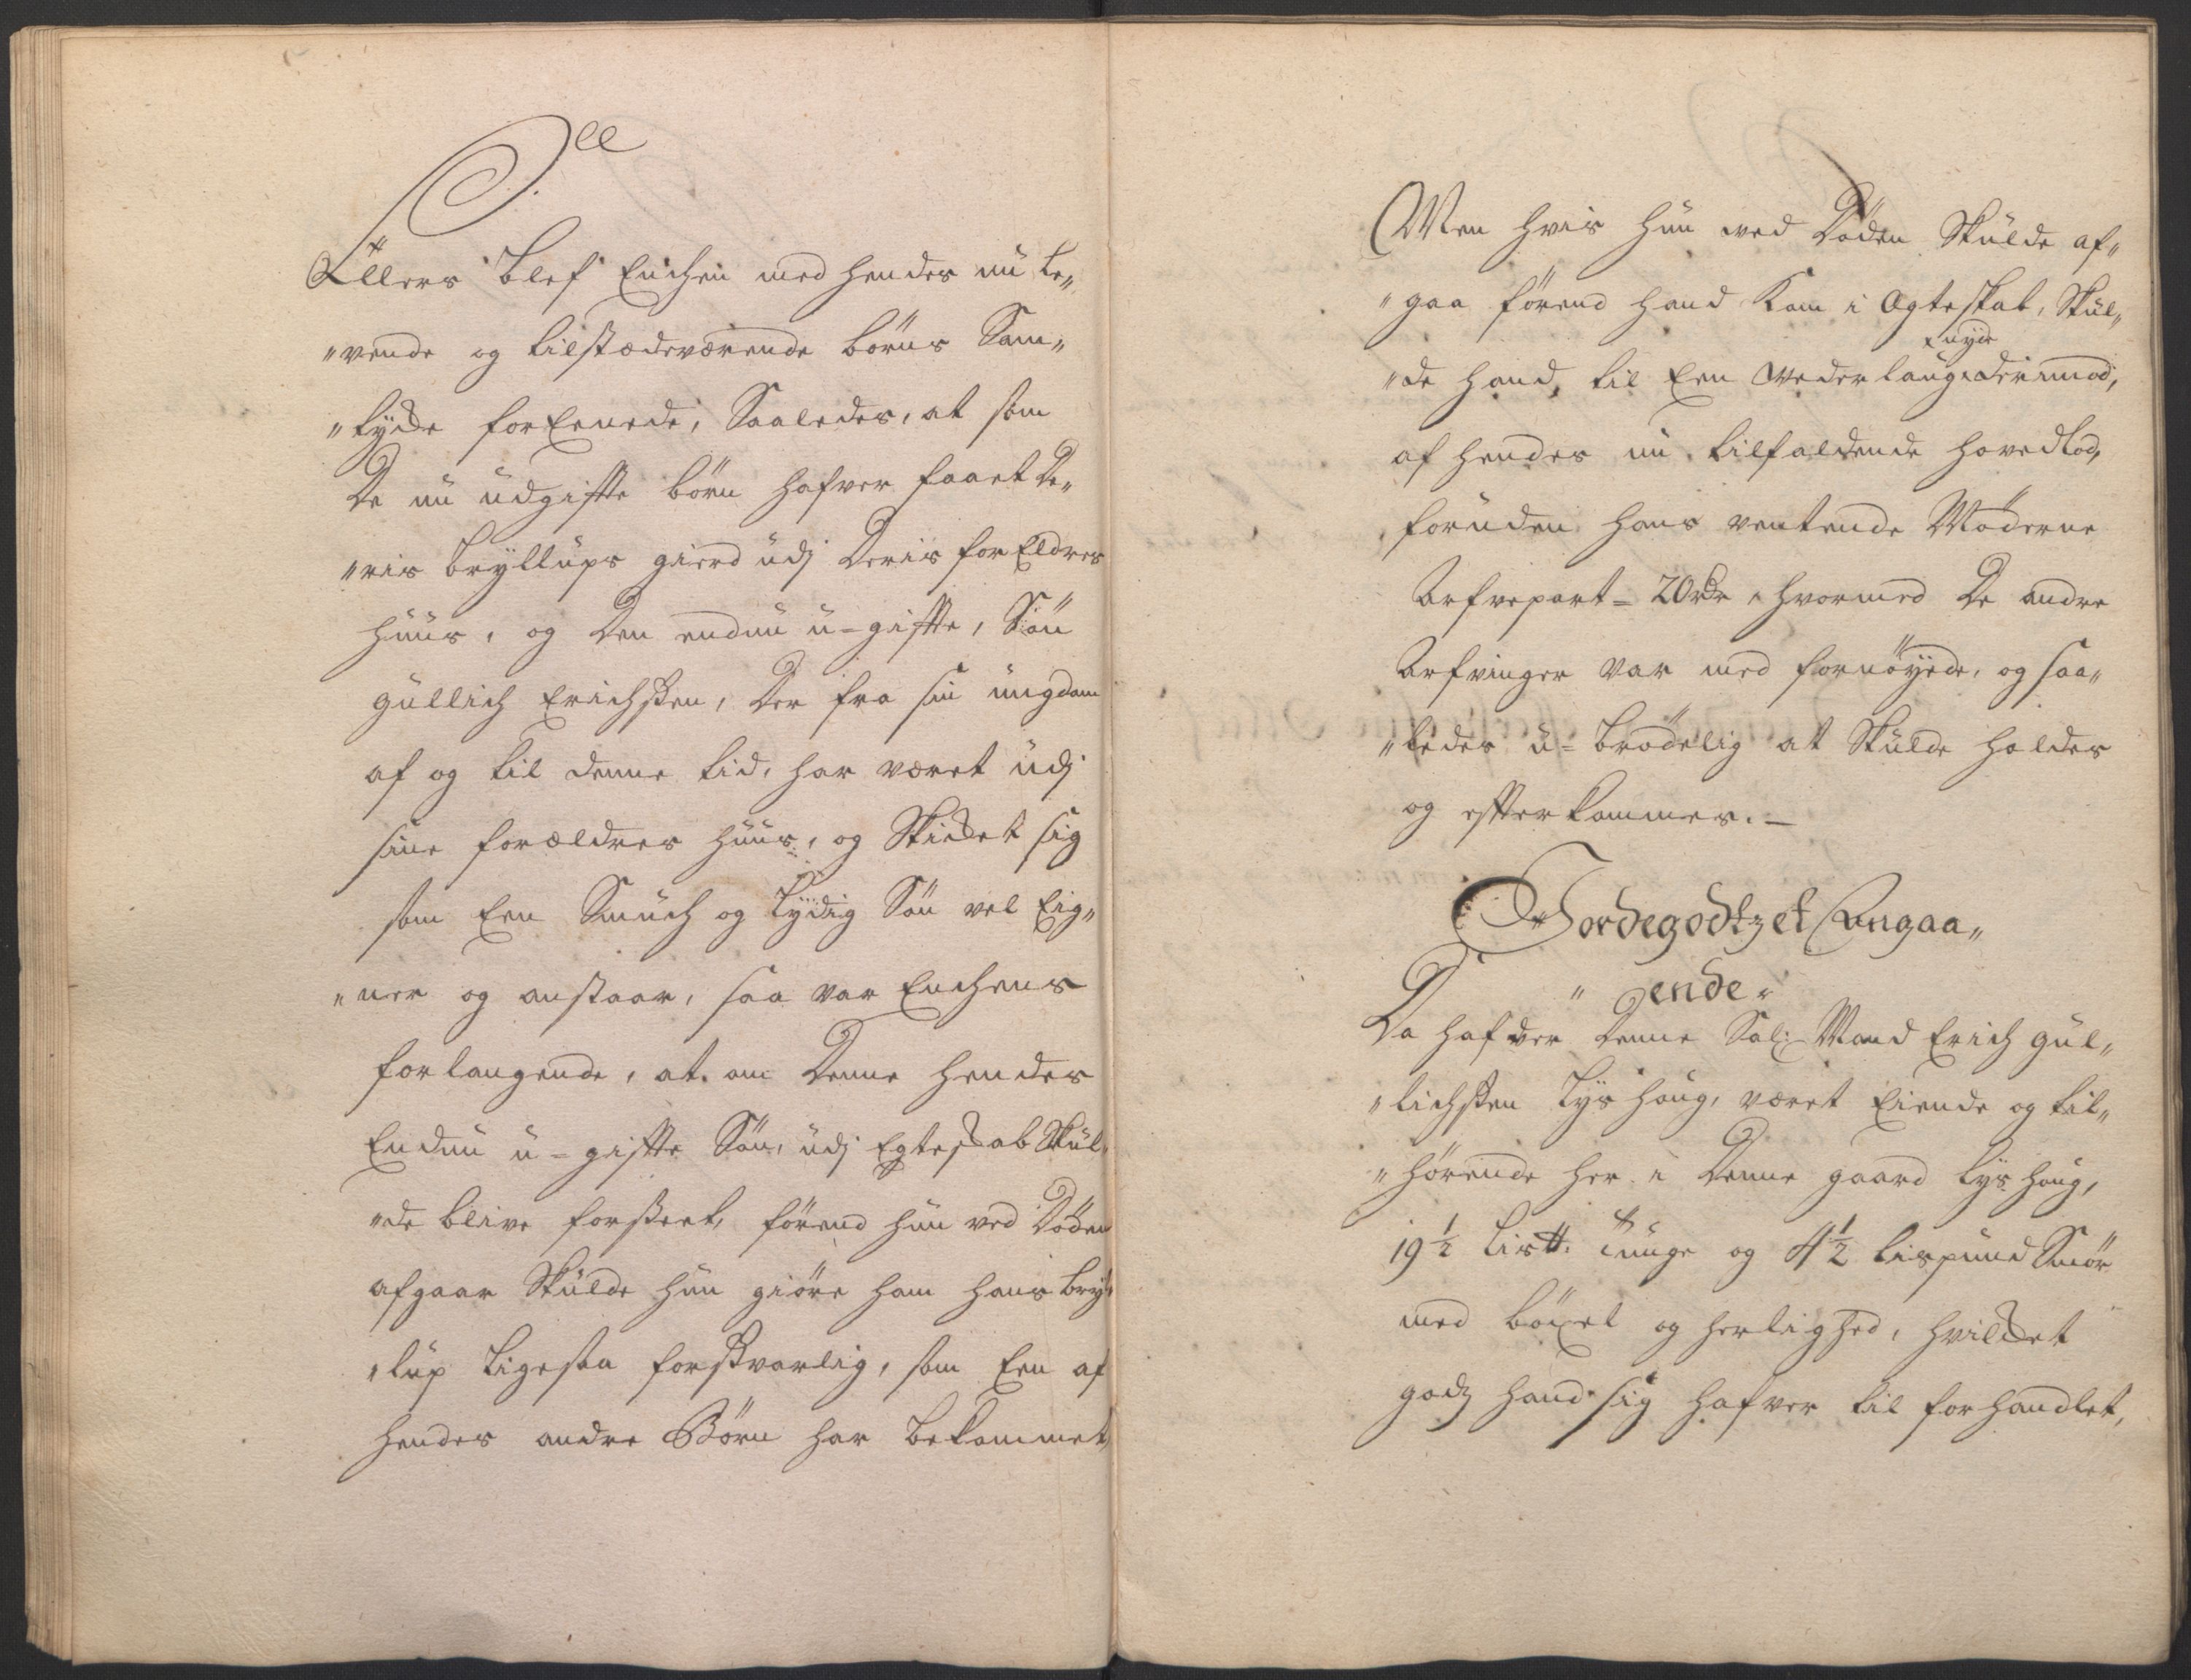 Ellers blef Enchen med hendes nu le„
„vende og tilstædeværende börns Sam„
„tyche forEenede, Saaledes, at som
De nu udgiffte börn hafver faaet De„
„ris bryllups gierd udj Deris forEldres
huus, og Den endnu u=giffte, Sön
gullich Erichsen, Der fra sin ungdom
af og til denne tid, har været udj
sine forældres huus, og Skicket sig
som Een Smuch og Lydig Sön vel Eig„
„ner og anstaar, saa var Enchens
forlangende, at om Denne hendes
Endnu u=giffte Sön, udj Egteskab Skul„
„de blive forseet, förend hun ved Döden
afgaar Skulde hun giöre ham hans bryl„
„lup Ligesaa forsvarlig, som Een af
hendes andre Börn har bekommet,
Men hvis hun ved Döden Skulde af„
„gaa förend hand kom i Ogteskab, Skul„
nyde
„de hand, til Een vederlaug derimod,
af hendes nu tilfaldende hovedlod,
foruden hans ventende Möderne
Arfvepart = 20 rdr, hvormed De andre
Arfvinger var med fornöyede, og saa„
„ledes u=brödelig at Skulde holdes
og efterkommes. –
Jordegodtzet Angaa„
„ende.
Da hafver Denne Sal: Mand Erich gul„
„lichsen Lyshoug, været Eiende og til„
„hörende her i Denne gaard Lyshoug,
19 1/2 Lis℔: Tunge og 4 1/2 Lispund Smör
med böxel og herlighed, hvilcket
godz hand sig hafver til forhandlet,